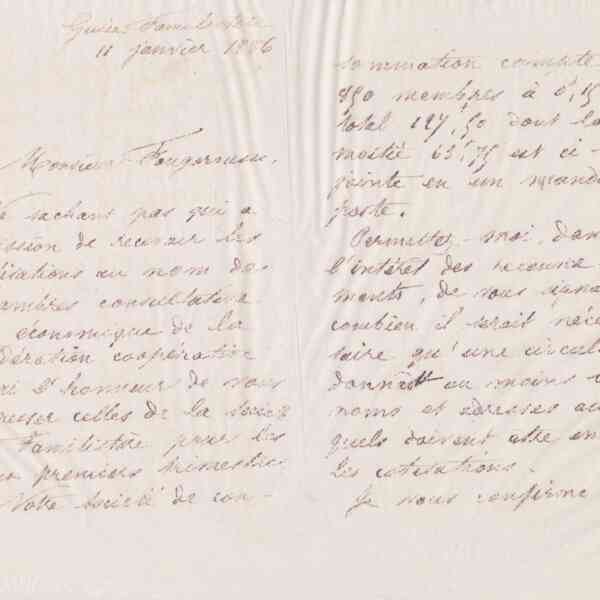 Guise Familistère
11 janvier 1886
Monsieur Fougerousse,
Ne sachant pas qui a
mission de recevoir les
cotisations au nom des
chambres consultative
économique de la
fédération coopérative
j'ai l'honneur de vous
adresser celles de la société
Familistère pour les
premiers trimestres.
Notre société de con-
sommation compte
850 membres à 0f,15
total 127f,50 dont la
moitié 63f,75 est ci-
jointe en un mandat
poste.
Permettez-moi, dans
l'intérêt des recouvre-
ments, de vous signaler
combien il serait néces-
saire qu'une circulaire
donnât au moins
noms et adresses aux
quels doivent être en
les cotisations.
Je vous confirme